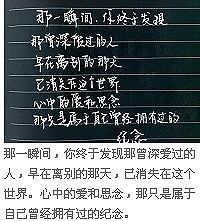 那一瞬间,你终于发现
那曾深爱过的人
早在离别的那天
已消失在这个世界
心中的爱和思念
那只是属于自己曾经拥有过的
纪念
那一瞬间，你终于发现那曾深爱过的
人，早在离别的那天，已消失在这个
世界。心中的爱和思念，那只是属于
自己曾经拥有过的纪念。